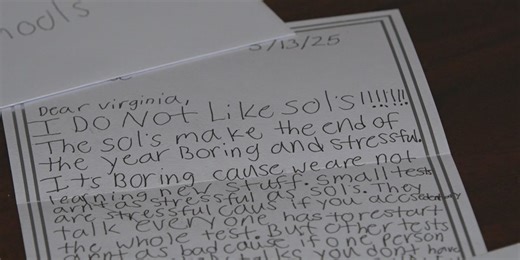 ools
5/13/25
Dear virginia,
I DO NOT Like SOL's!!!!!!!
The SOL's make the end of
the year Boring and stressful.
Its Boring cause we are not
learning new stuff. small tests
arnt as stressful as SOL's. They
are stressful caus if you accsedently
talk everyone has to restart
the whole test. But other tests
arnt as bad cause if one person
talks you dont have